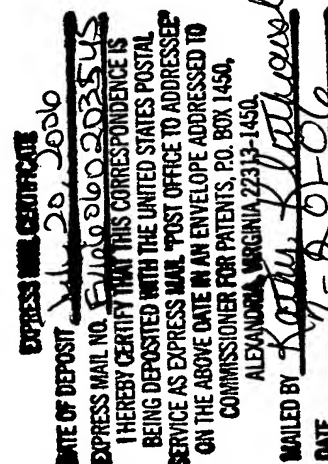 EXPRESS MAIL CERTIFICATE
DATE OF DEPOSIT July 20, 2006
EXPRESS MAIL NO.
I HEREBY CERTIFY THAT THIS CORRESPONDENCE IS
BEING DEPOSITED WITH THE UNITED STATES POSTAL
SERVICE AS EXPRESS MAIL "POST OFFICE TO ADDRESSEE"
ON THE ABOVE DATE IN AN ENVELOPE ADDRESSED TO
COMMISSIONER FOR PATENTS, P.O. BOX 1450,
ALEXANDRIA, VIRGINIA 22313-1450.
MAILED BY Kathy
DATE